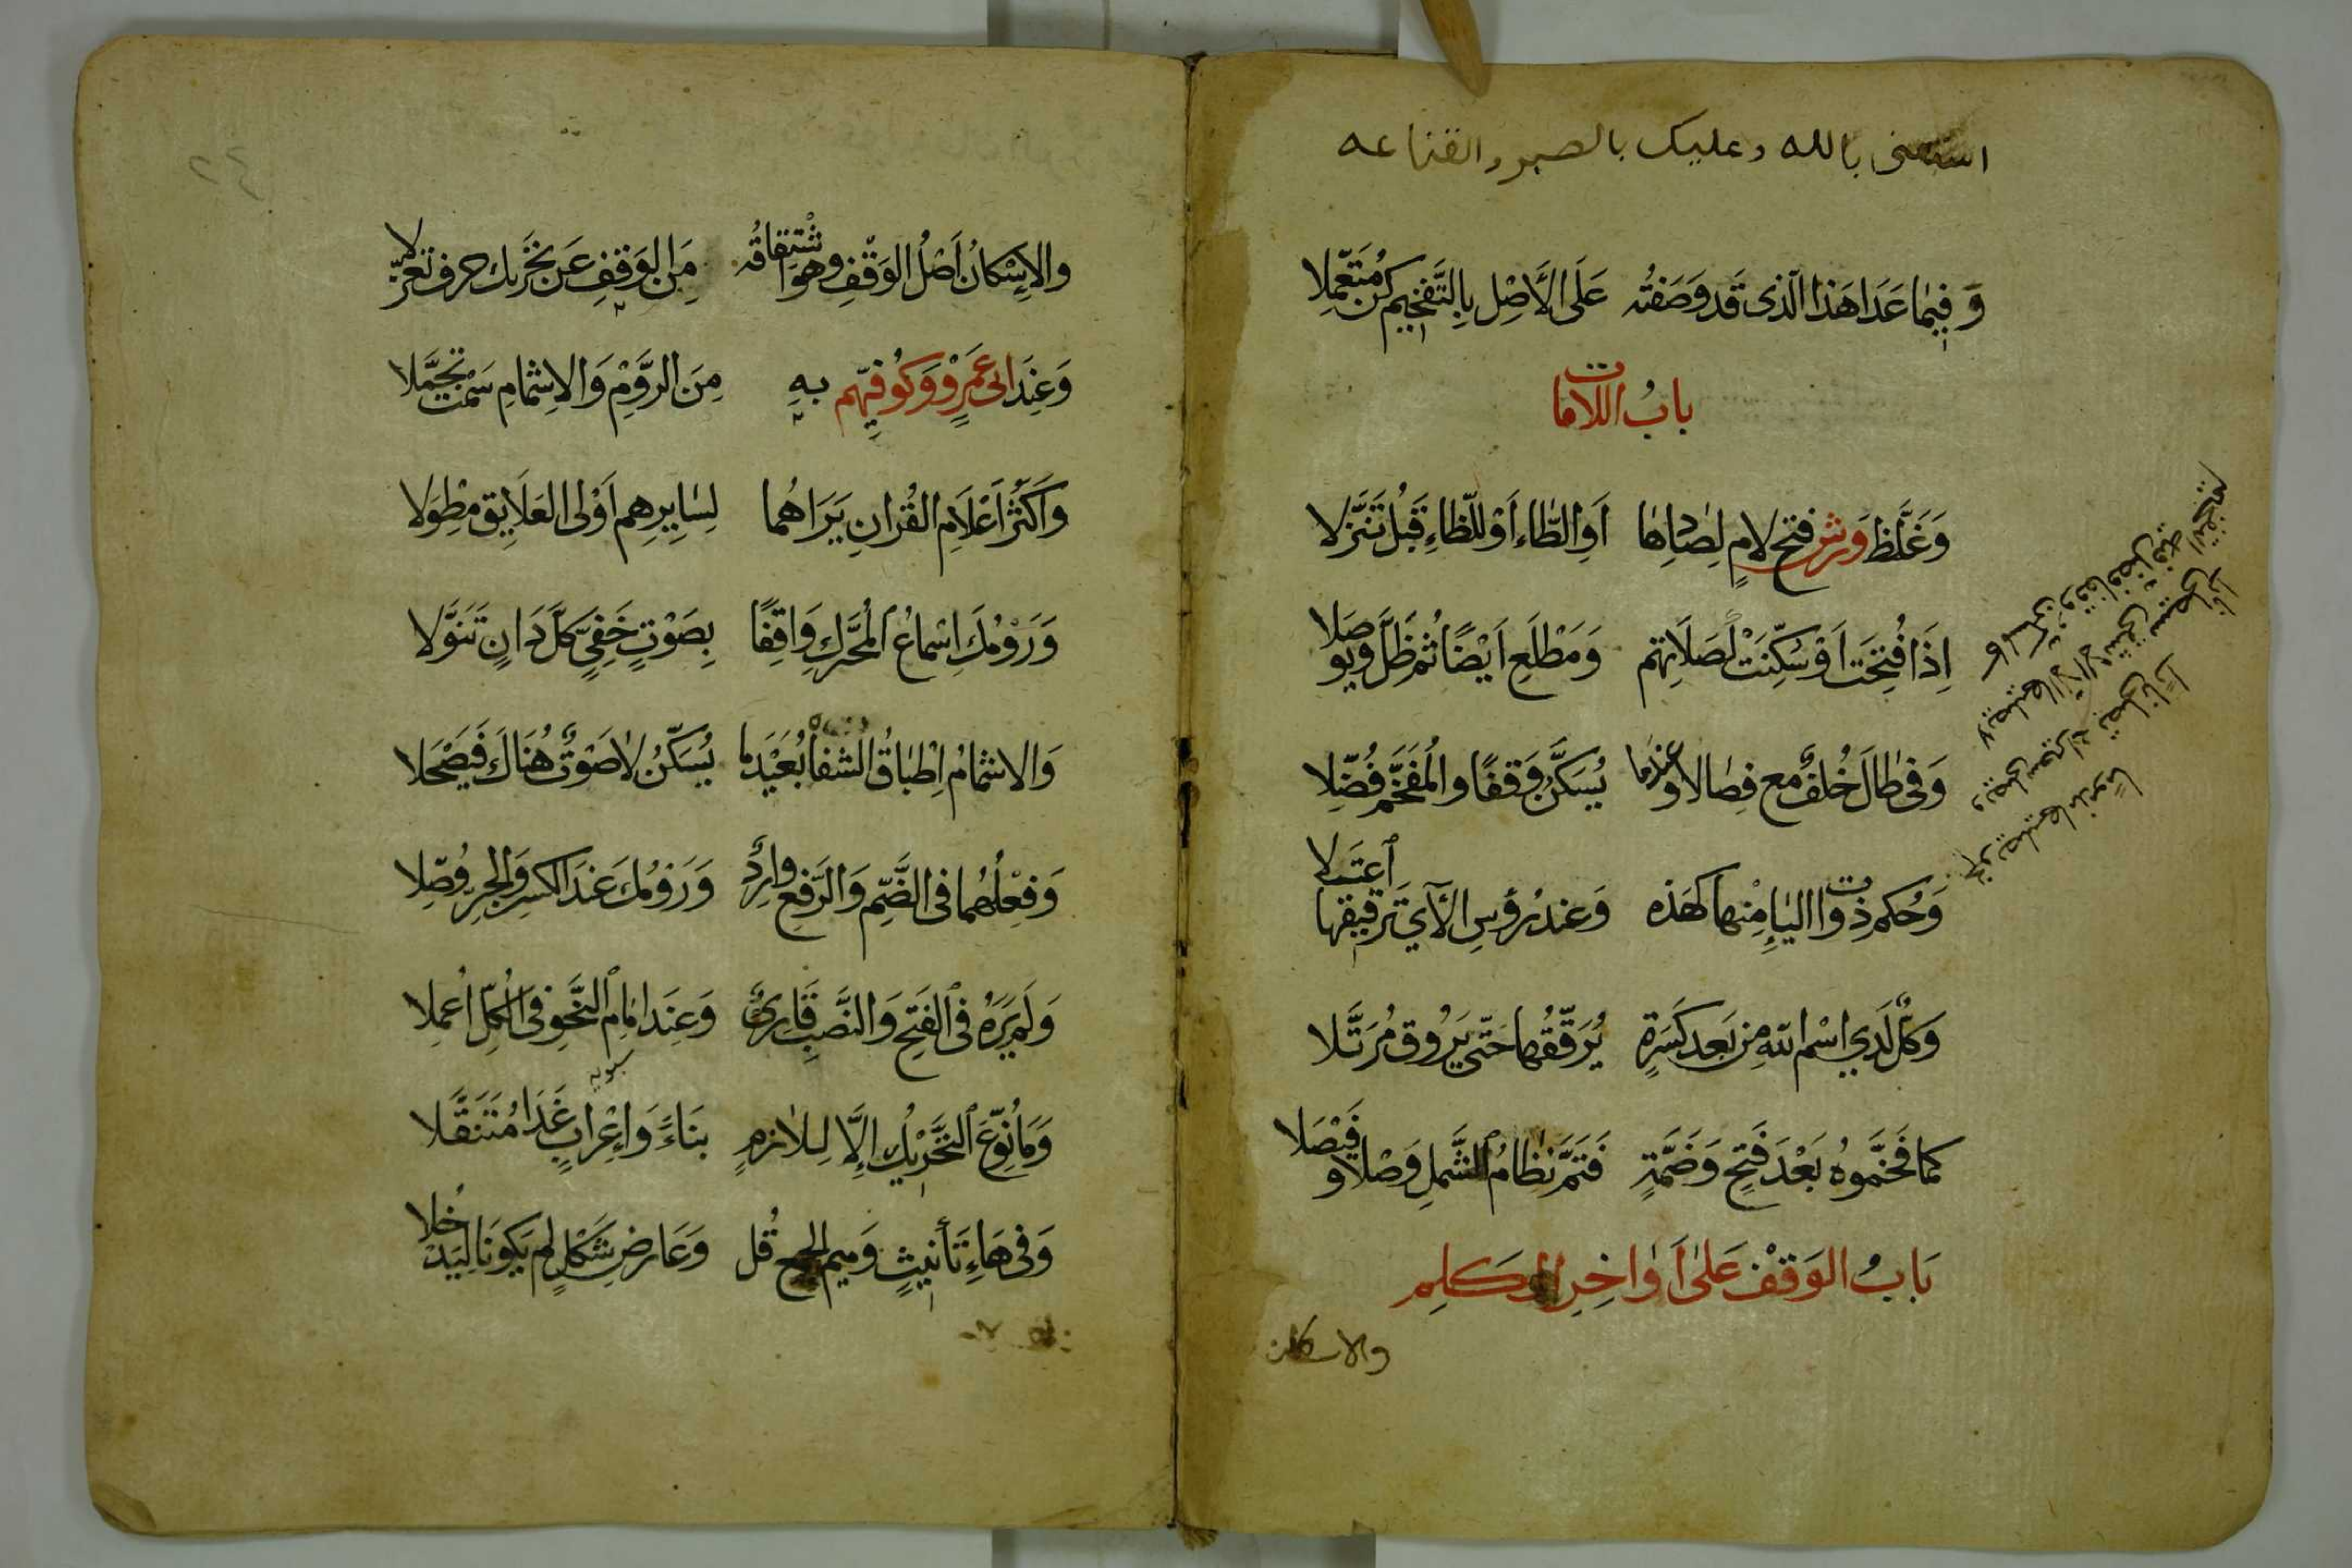 استعنى بالله وعليك بالصبر والقناعه
وَفِيمَا عَدَا هَذَا الَّذِى قَد وَصَفتُه عَلَى الأَصْلِ بِالتَّفخِيمِ كُن مُتَعَمِّلا
بابُ اللاماتِ
وَغَلَّظَ وَرش فتحَ لامٍ لِصَادِهَا أَوِ الطَّاءِ أَوْ لِلظَّاءِ قَبلُ تَنَزُّلا
إِذَا فُتِحَت أَوْ سُكِّنَتْ لَصَلَاتِهم وَمَطْلَعِ أَيْضًا ثُم ظَلَّ وَيُوصَلا
وَفِى طَالَ خُلفٌ مَع فِصَالًا وعندما يُسَكَّنُ وَقفًا والمُفَخَّمُ فُضِّلا
وَحُكم ذواتِ اليَاءِ مِنْها كهَذه وَعندَ رُؤسِ الآيِ تَرقِيقها اعتَلا
وَكُل لَدى اسْمِ اللهِ مِن بَعدِ كَسْرَةٍ يُرَقِّقُها حَتّى يَرُوقَ مُرَتَّلا
كما فَخَّمُوهُ بَعْدَ فَتحٍ وَضَمَّةٍ فَتَمَّ نِظَامُ الشَّملِ وَصْلا وفَيْصَلا
بَابُ الوَقْفِ عَلىٰ أَوَاخِرِ الكَلِم
والاسكان
لا يصليها الا الاشقى
ويصلى سعيرا
يصليها مذموما
٢٤
والإِسْكانُ أَصْلُ الوَقْفِ وهوَ اشْتِقاقُه مِنَ الوَقفِ عَن تَحْرِيكِ حرفٍ تَعَزّلا
وَعِندَ ابى عَمرٍو وَكُوفِيِّهم بهِ مِنَ الرَّوْمِ وَالاِشْمامِ سَمْت تَجَمَّلا
وَأَكثَرُ أَعْلَامِ القُرانِ يَرَاهُما لِسَايِرِهِم أَوْلى العَلَايِقِ مِطْوَلا
وَرَوْمُكَ اِسْماعُ المُحَرَّكِ وَاقِفًا بِصَوْتٍ خَفِيٍّ كلَّ دَانٍ تَنَوَّلا
وَالاشْمامُ إِطْباقُ الشفاه بُعَيْدَما يُسَكّنُ لاصَوْتٌ هُنَاكَ فَيَصْحَلا
وَفِعْلُهُما فى الضَّمِّ وَالرَّفعِ وارِدٌ وَرَوْمُكَ عندَ الكسرِ وَالجرِّ وُصِّلا
وَلَم يَرَهُ فى الفَتحِ وَالنَّصبِ قَارِئٌ وَعِندَ إمامِ النَّحْوِ فى الكُلِّ أُعمِلا
سيبويه
وَمَا نُوِّعَ التَّحْرِيكُ إِلَّا لِلازمٍ بنَاءً وَإِعْرابٍ غَدَا مُتَنَقَّلا
وَفى هَاءِ تَأنيثٍ وَميمِ الجمعِ قُل وَعَارضِ شَكْلٍ لَم يَكونَا لِيَدْخُلا